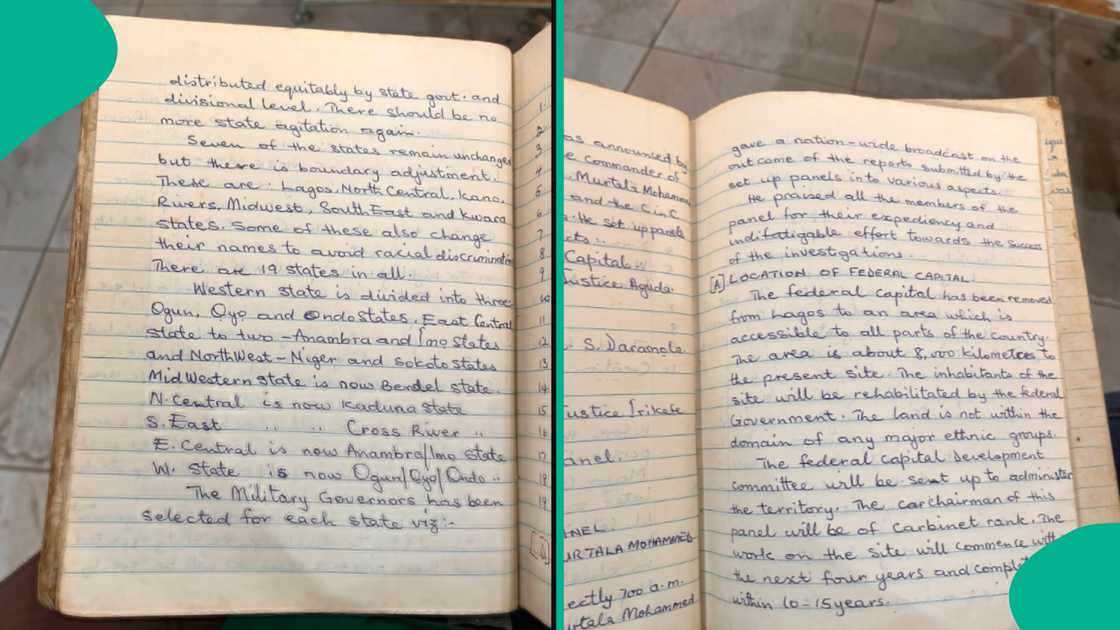 distributed equitably by state govt. and
divisional level. There should be no
more state agitation again.
Seven of the states remain unchange
but there is boundary adjustment.
These are: Lagos, North Central, Kano,
Rivers, Midwest, South East and Kwara
states. Some of these also change
their names to avoid racial discrimination
There are 19 states in all.
Western state is divided into three
Ogun, Oyo and Ondo states, East Central
state to two - Anambra and Imo states
and North West - Niger and Sokoto states
Mid Western state is now Bendel state.
N. Central is now Kaduna state
S. East " " Cross River "
E. Central is now Anambra/Imo state
W. State is now Ogun/Oyo/Ondo "
The Military Governors has been
selected for each state viz:-
1.
2.
3
4
5
6
7
8
9
10
11
12
13
14
15
16
17
18
19
as announced by
commander of
Murtala Mohamme
and the C in C
. He set up panels
cts:.
Capital
Justice Aguda.
. S. Daramola
Justice Irikefe
anel.
NEL
URTALA MOHAMMED
ectly 700 a.m.
rtala Mohammed
gave a nation-wide broadcast on the
out come of the reports submitted by the
set up panels into various aspects.
He praised all the members of the
panel for their expediency and
indifatigable effort towards the success
of the investigations.
[A] LOCATION OF FEDERAL CAPITAL.
The federal capital has been removed
from Lagos to an area which is
accessible to all parts of the country.
The area is about 8,000 kilometres to
the present site. The inhabitants of the
site will be rehabilitated by the federal
Government. The land is not within the
domain of any major ethnic groups.
The federal capital development
committee will be set up to administer
the territory. The chairman of this
panel will be of Carbinet rank. The
work on the site will commence with
the next four years and complet
within 10-15 years.